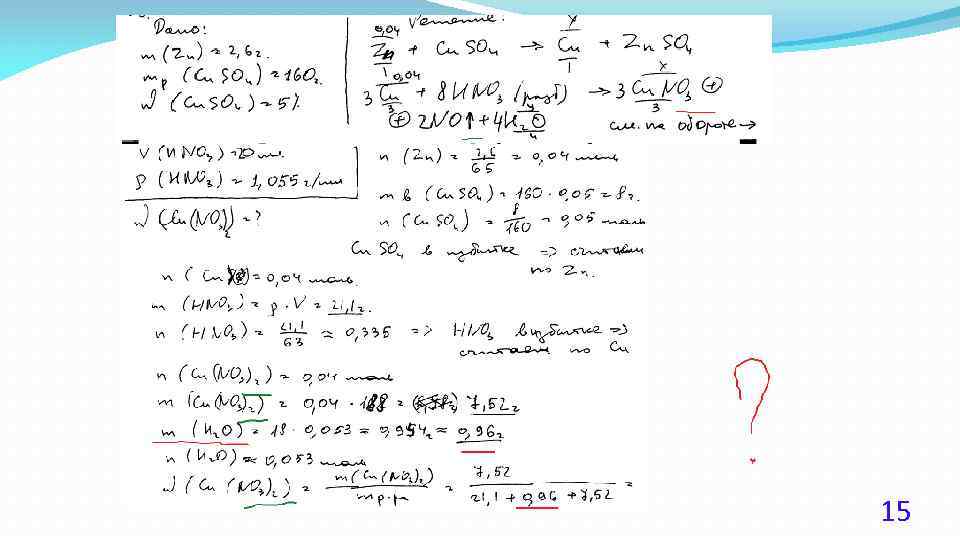 Дано:
m (Zn) = 2,6 г.
mр (CuSO4) = 160 г.
ω (CuSO4) = 5%
V (HNO3) = 20 мл.
ρ (HNO3) = 1,055 г/мл
ω (Cu(NO3)2) = ?
Решение:
0,04 x
Zn + CuSO4 → Cu + ZnSO4
1 1
0,04 x
3 Cu + 8HNO3 (разб) → 3 CuNO3 ⊕
3 3
⊕ 2NO↑ + 4H2O
4
см. на обороте →
n (Zn) = 2,6/65 = 0,04 моль
m в (CuSO4) = 160 · 0,05 = 8 г.
n (CuSO4) = 8/160 = 0,05 моль
CuSO4 в избытке => считаем
по Zn.
n (Cu) = 0,04 моль.
m (HNO3) = ρ · V = 21,1 г.
n (HNO3) = 21,1/63 ≈ 0,335 => HNO3 в избытке =>
считаем по Cu
n (Cu(NO3)2) = 0,04 моль
m (Cu(NO3)2) = 0,04 · 188 = 7,52 г
m (H2O) = 18 · 0,053 = 0,954 г ≈ 0,96 г
n (H2O) ≈ 0,053 моль
ω (Cu(NO3)2) = m(Cu(NO3)2)/m р-ра = 7,52/21,1 + 0,96 + 7,52 =
?
15